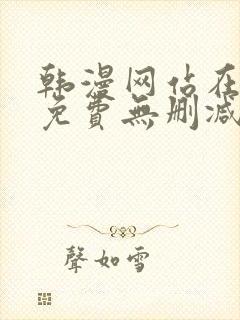 韩漫网站在
免費無删减
聲如雪